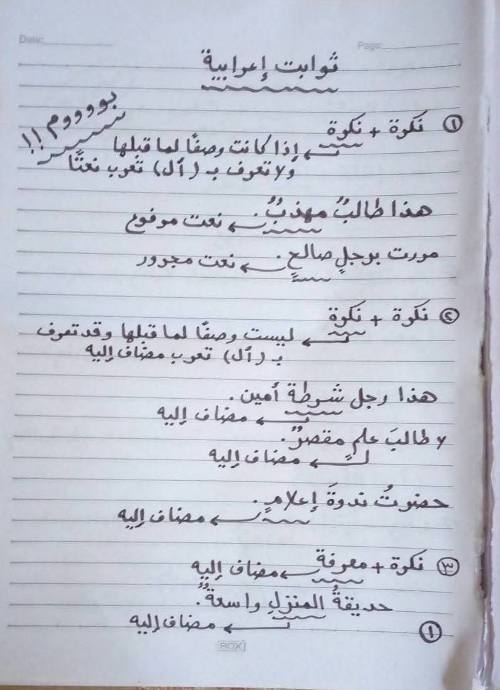 Date:
Page:
ثوابت إعرابية
بووووم !!
١ نكرة + نكرة
إذا كانت وصفًا لما قبلها
ولا تعرف بـ (أل) تعرب نعتًا
هذا طالبٌ مهذبٌ.
نعت مرفوع
مررت برجلٍ صالحٍ.
نعت مجرور
٢ نكرة + نكرة
ليست وصفًا لما قبلها وقد تعرف
بـ (أل) تعرب مضاف إليه
هذا رجل شرطة أمين.
مضاف إليه
لا طالبَ علمٍ مقصرٌ.
مضاف إليه
حضرتُ ندوةَ إعلامٍ.
مضاف إليه
٣ نكرة + معرفة
مضاف إليه
حديقةُ المنزلِ واسعةٌ.
مضاف إليه
١
ROX